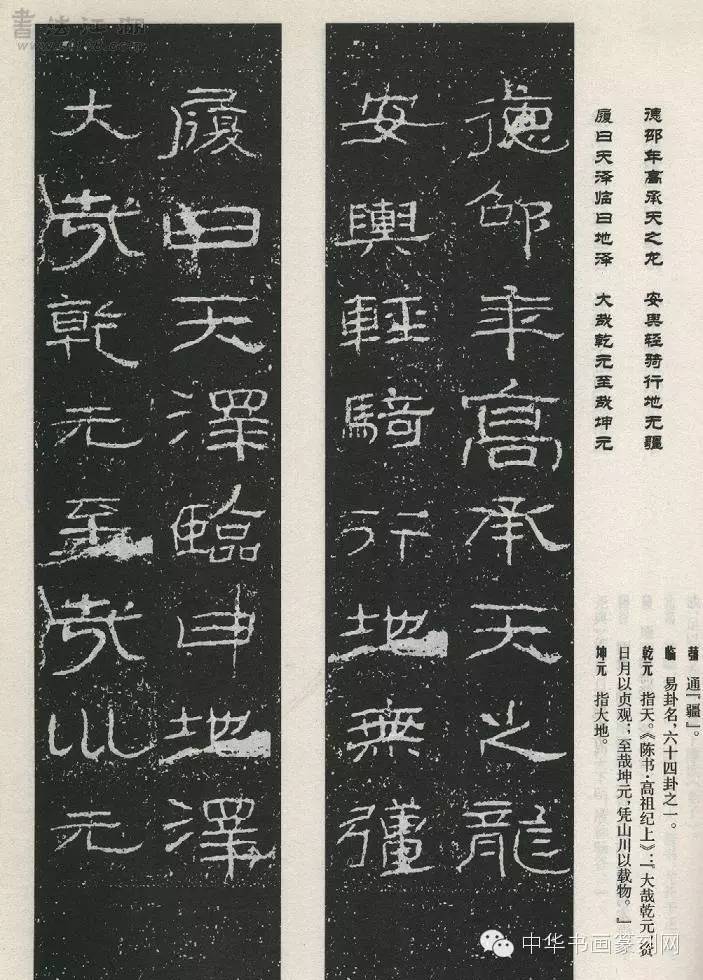 德邵年高承天之龙　安舆轻骑行地无疆
履曰天泽临曰地泽　大哉乾元至哉坤元
彊　通「疆」。
临　易卦名，六十四卦之一。
乾元　指天。《陈书·高祖纪上》：「大哉乾元，资
日月以贞观；至哉坤元，凭山川以载物。」
坤元　指大地。
德邵年高承天之龍
安輿輕騎行地無彊
履曰天澤臨曰地澤
大哉乾元至哉巛元
書法江湖
中华书画篆刻网